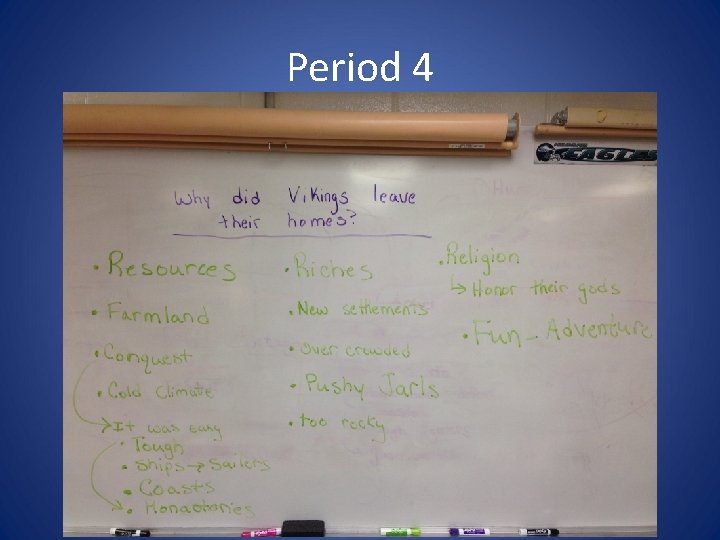 Period 4
EAGLES
Why did Vikings leave
their homes?
• Resources
• Farmland
• Conquest
• Cold Climate
→ It was easy
• Tough
• Ships → Sailers
• Coasts
• Monastories
• Riches
• New settlements
• over crowded
• Pushy Jarls
• too rocky
• Religion
↳ Honor their gods
• Fun - Adventure